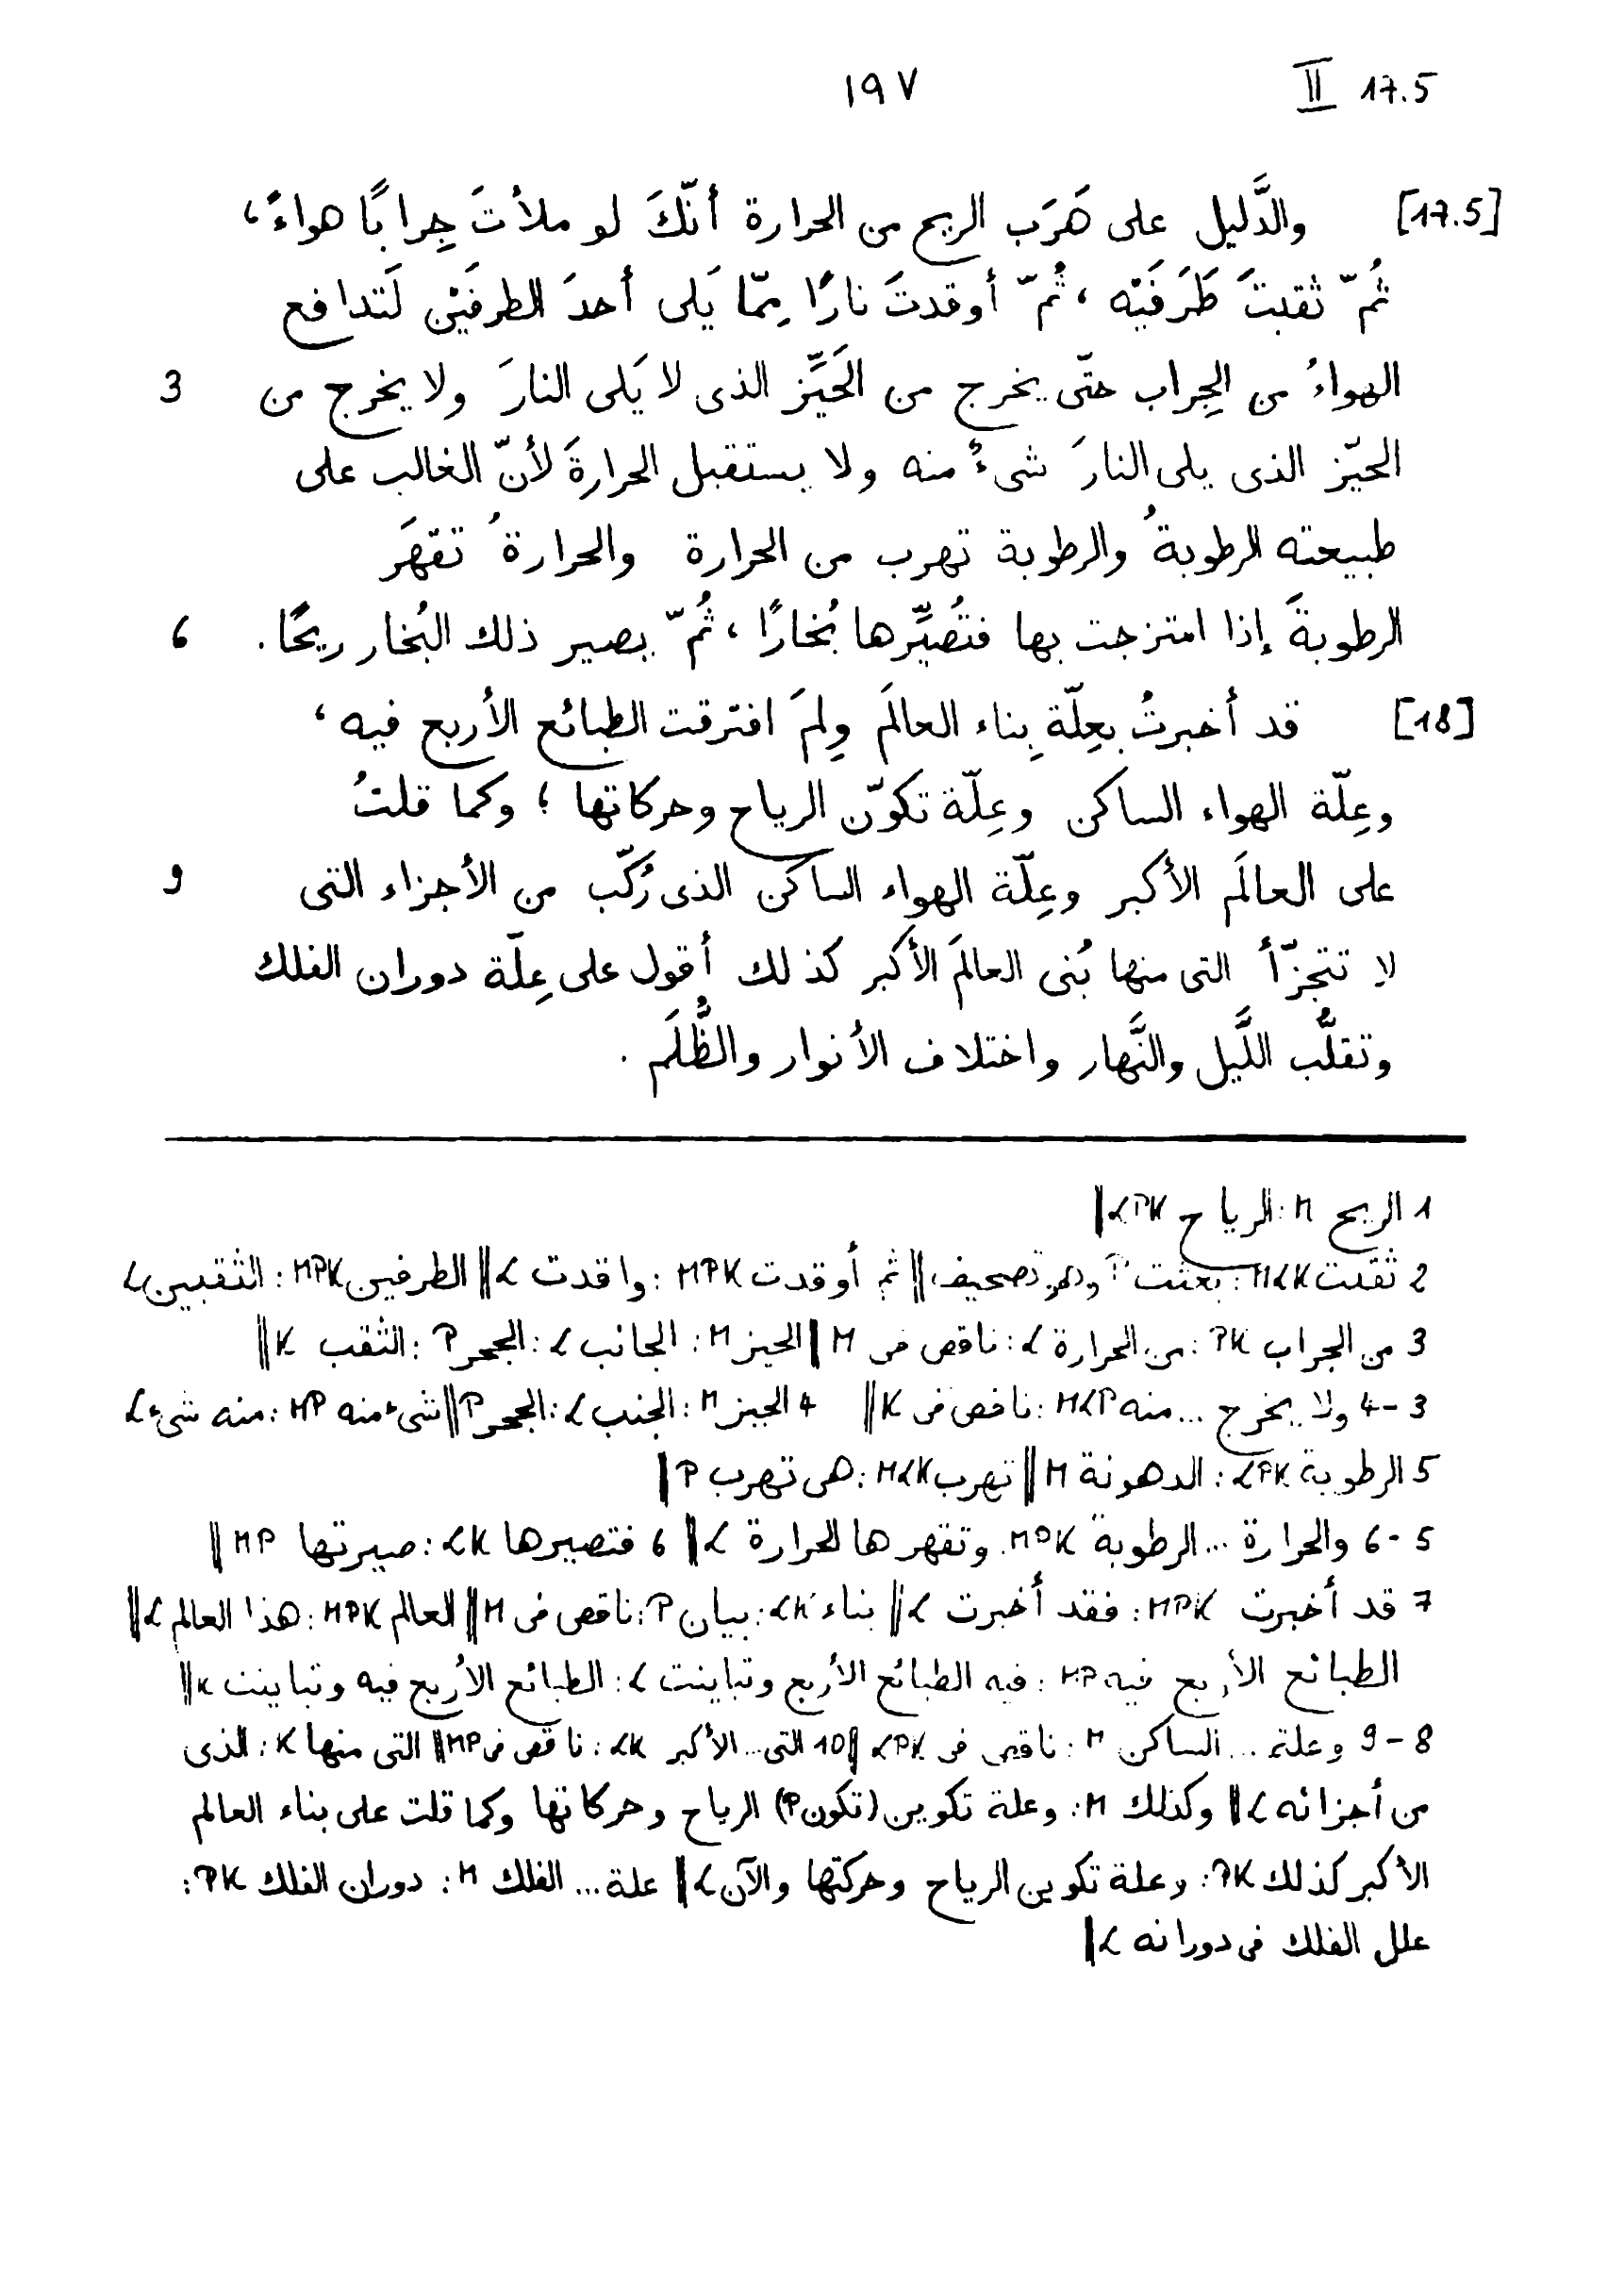 ١٩٧ II 17.5
[17.5] والدَّليل على هَرَب الريح من الحرارة أنّكَ لو ملأتَ جِرابًا هواءً،
ثُمّ ثقبتَ طَرَفَيْه، ثُمّ أوقدتَ نارًا مِمّا يَلى أحدَ الطرفَيْن لَتدافع
الهواءُ من الجِراب حتّى يخرج من الحَيِّز الذى لا يَلى النارَ ولا يخرج من 3
الحيّز الذى يلى النارَ شىءٌ منه ولا يستقبل الحرارةَ لأنّ الغالب على
طبيعته الرطوبةُ والرطوبة تهرب من الحرارة والحرارةُ تقهَر
الرطوبةَ إذا امتزجت بها فتُصَيِّرها بُخارًا، ثُمّ يصير ذلك البُخار ريحًا. 6
[18] قد أخبرتُ بعِلّة بِناء العالَم ولِمَ افترقت الطبائع الأربع فيه،
وعِلّة الهواء الساكن وعِلّة تكوّن الرياح وحركاتها؛ وكما قلتُ
على العالَم الأكبر وعِلّة الهواء الساكن الذى رُكّب من الأجزاء التى 9
لا تتجزّأ التى منها بُنى العالَم الأكبر كذلك أقول على عِلّة دوران الفلك
وتقلُّب اللَّيل والنَّهار واختلاف الأنوار والظُّلَم.
1 الريح M: الرياح LPK ||
2 ثقبت MLK: بعثت P وهو تصحيف، || ثم أوقدت MPK: واقدت L || الطرفين MPK: الثقبين L
3 من الجراب PK: من الحرارة L: ناقص فى M || الحيز M: الجانب L: الجحر P: الثقب K ||
3-4 ولا يخرج ... منه MLP: ناقص فى K || 4 الحيز M: الجنب L: الجحر P || شىء منه MP: منه شىء L
5 الرطوبة LPK: الدهونة M || تهرب MLK: هى تهرب P ||
5-6 والحرارة ... الرطوبة MPK: وتقهرها الحرارة L || 6 فتصيرها LK: صيرتها MP ||
7 قد أخبرت MPK: فقد أخبرت L || بناء LK: بيان P: ناقص فى M || العالم MPK: هذا العالم L ||
الطبائع الأربع فيه MP: فيه الطبائع الأربع وتباينت L: الطبائع الأربع فيه وتباينت K ||
8-9 وعلة ... الساكن M: ناقص فى LPK || 10 التى ... الأكبر LK: ناقص فى MP || التى منها K: الذى
من أجزائه L || وكذلك M: وعلة تكوين (تكون P) الرياح وحركاتها وكما قلت على بناء العالم
الأكبر كذلك PK: وعلة تكوين الرياح وحركتها والآن L || علة ... الفلك M: دوران الفلك PK:
علل الفلك فى دورانه L ||